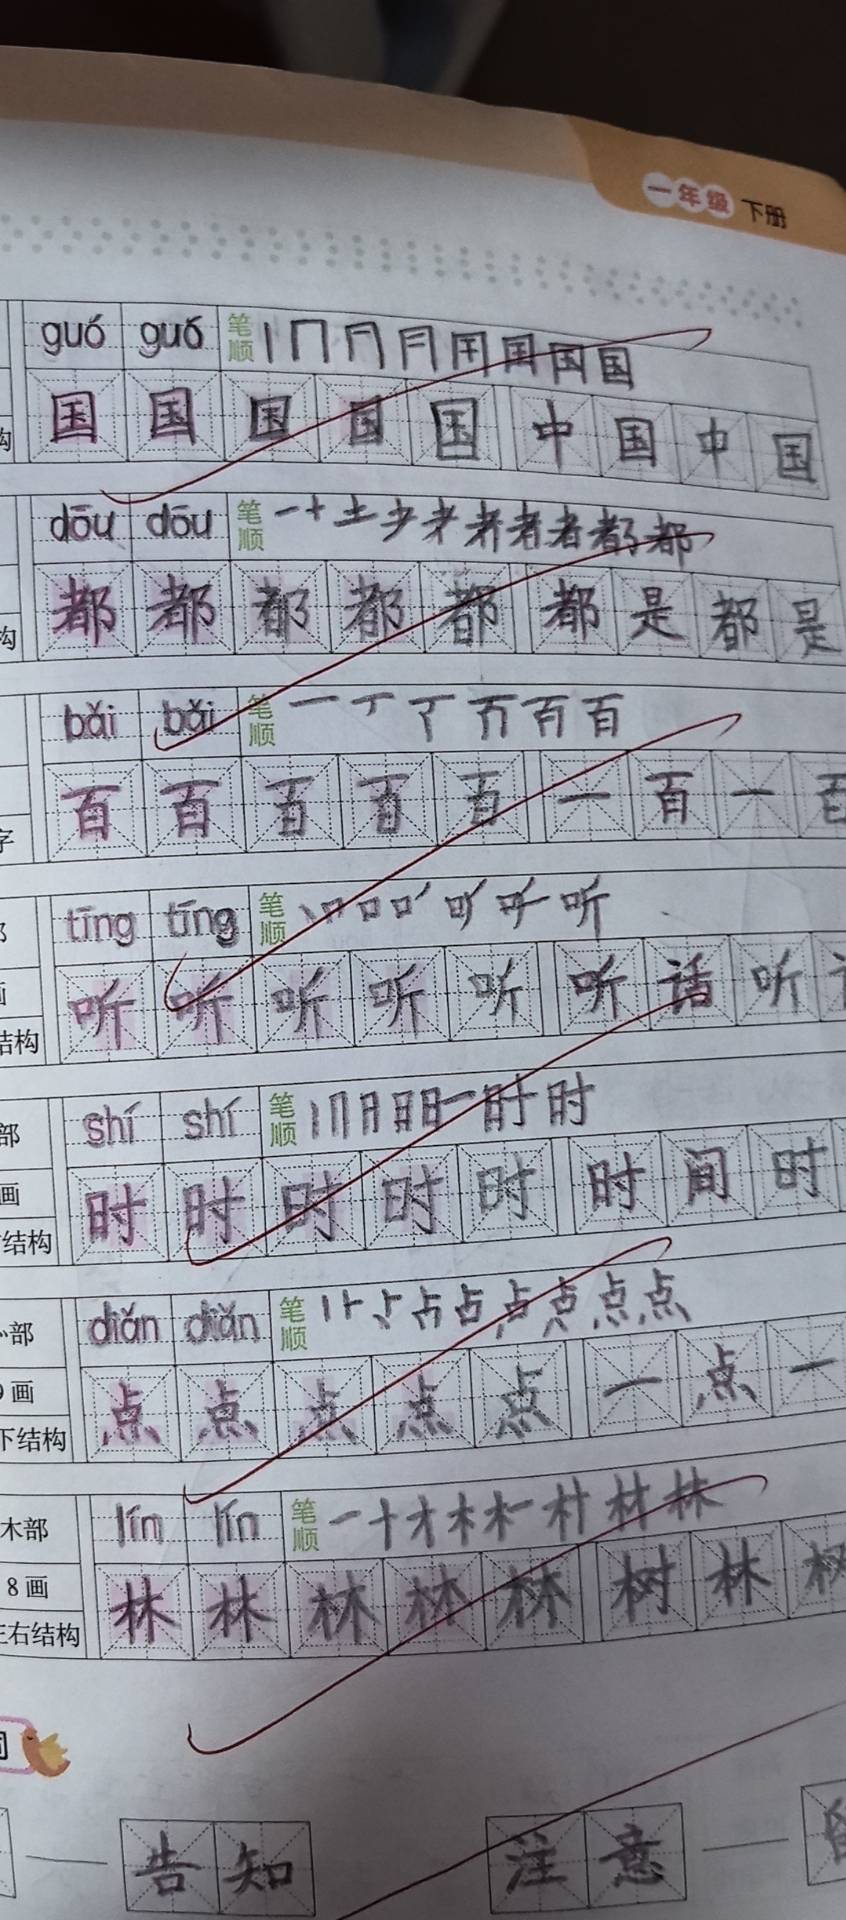 一年级 下册
guó guó 笔顺 丨 冂 冂 冃 用 国 国 国
构 国 国 国 国 国 中 国 中 国
dōu dōu 笔顺 一 十 土 耂 耂 者 者 者 都 都
构 都 都 都 都 都 都 是 都 是
bǎi bǎi 笔顺 一 丆 百 百
字 百 百 百 百 百 一 百 一 百
tīng tīng 笔顺 丨 口 口 听
画
结构 听 听 听 听 听 听 话 听
部 shí shí 笔顺 丨 冂 日 日 时 时
画
结构 时 时 时 时 时 时 间 时
部 diǎn diǎn 笔顺 丨 卜 占 占 点 点
9画
下结构 点 点 点 点 点 一 点 一
木部 lín lín 笔顺 一 十 才 木 木 村 材 林
8画
左右结构 林 林 林 林 林 树 林 树
词
告知 注意